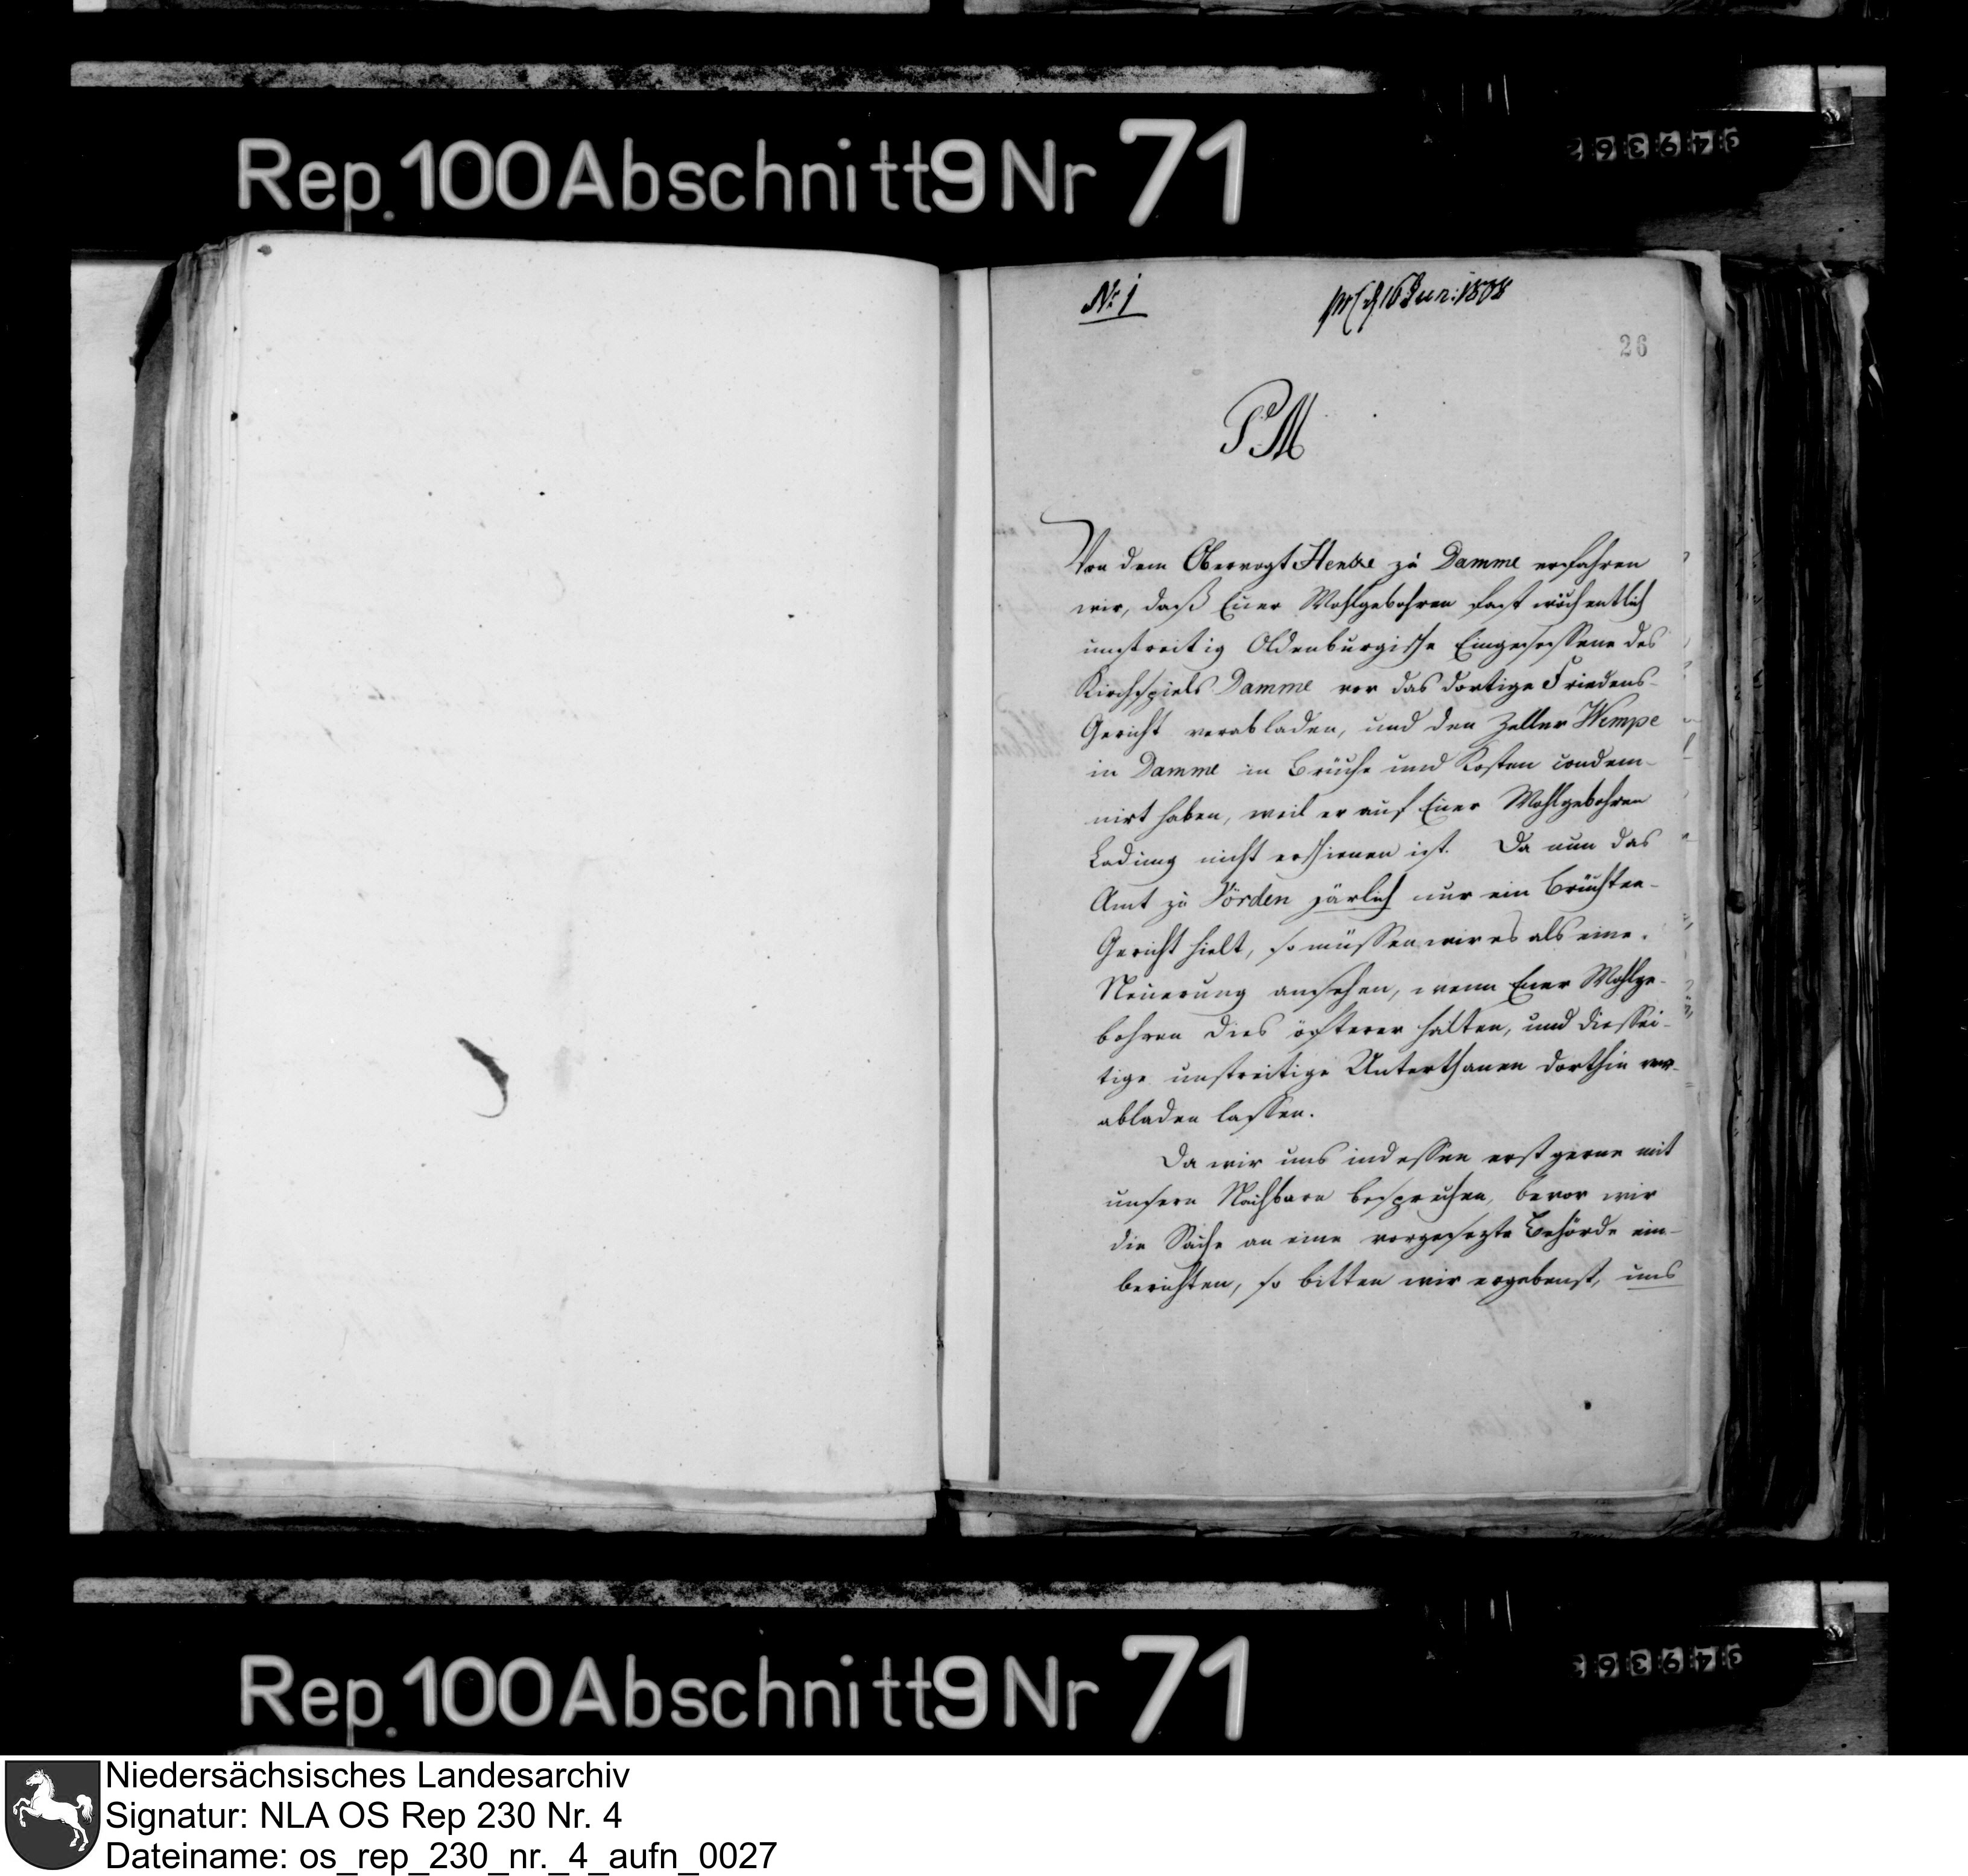 Rep. 100 Abschnitt 9 Nr 71
No 1
26
PM
Von dem Obervogt Henke zu Damme erfahren
wir, daß Euer Wohlgebohren fast wöchentlich
unstreitig Oldenburgische Eingesessene des
Kirchspiels Damme vor das dortige Friedens-
Gericht verabladen, und den Zeller Wempe
in Damme in Brüche und Kosten condem-
nirt haben, weil er auf Euer Wohlgebohren
Ladung nicht erschienen ist. Da nun das
Amt zu Vörden järlich nur ein Brüchten-
Gericht hielt, so müssen wir es als eine
Neuerung ansehen, wenn Euer Wohlge-
bohren dies öfterer halten, und diessei-
tige unstreitige Unterthanen dorthin ver-
abladen lassen.
Da wir uns indessen erst gerne mit
unsern Nachbarn besprechen, bevor wir
die Sache an eine vorgesezte Behörde ein-
berichten, so bitten wir ergebenst, uns
Rep. 100 Abschnitt 9 Nr 71
Niedersächsisches Landesarchiv
Signatur: NLA OS Rep 230 Nr. 4
Dateiname: os_rep_230_nr._4_aufn_0027